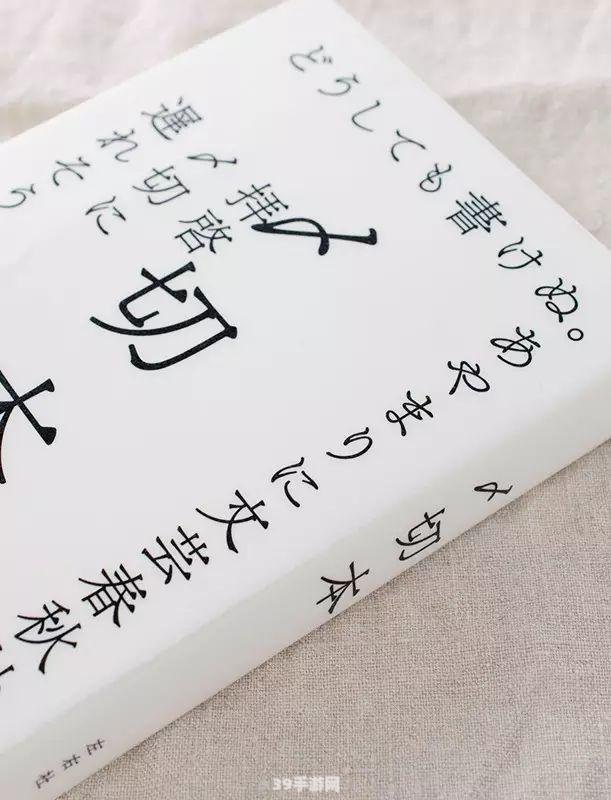 どうしても書けぬ。
あやまりに文芸春秋
拝啓
〆切に
遅れそう
〆切本
〆切本
左右社
39手游网